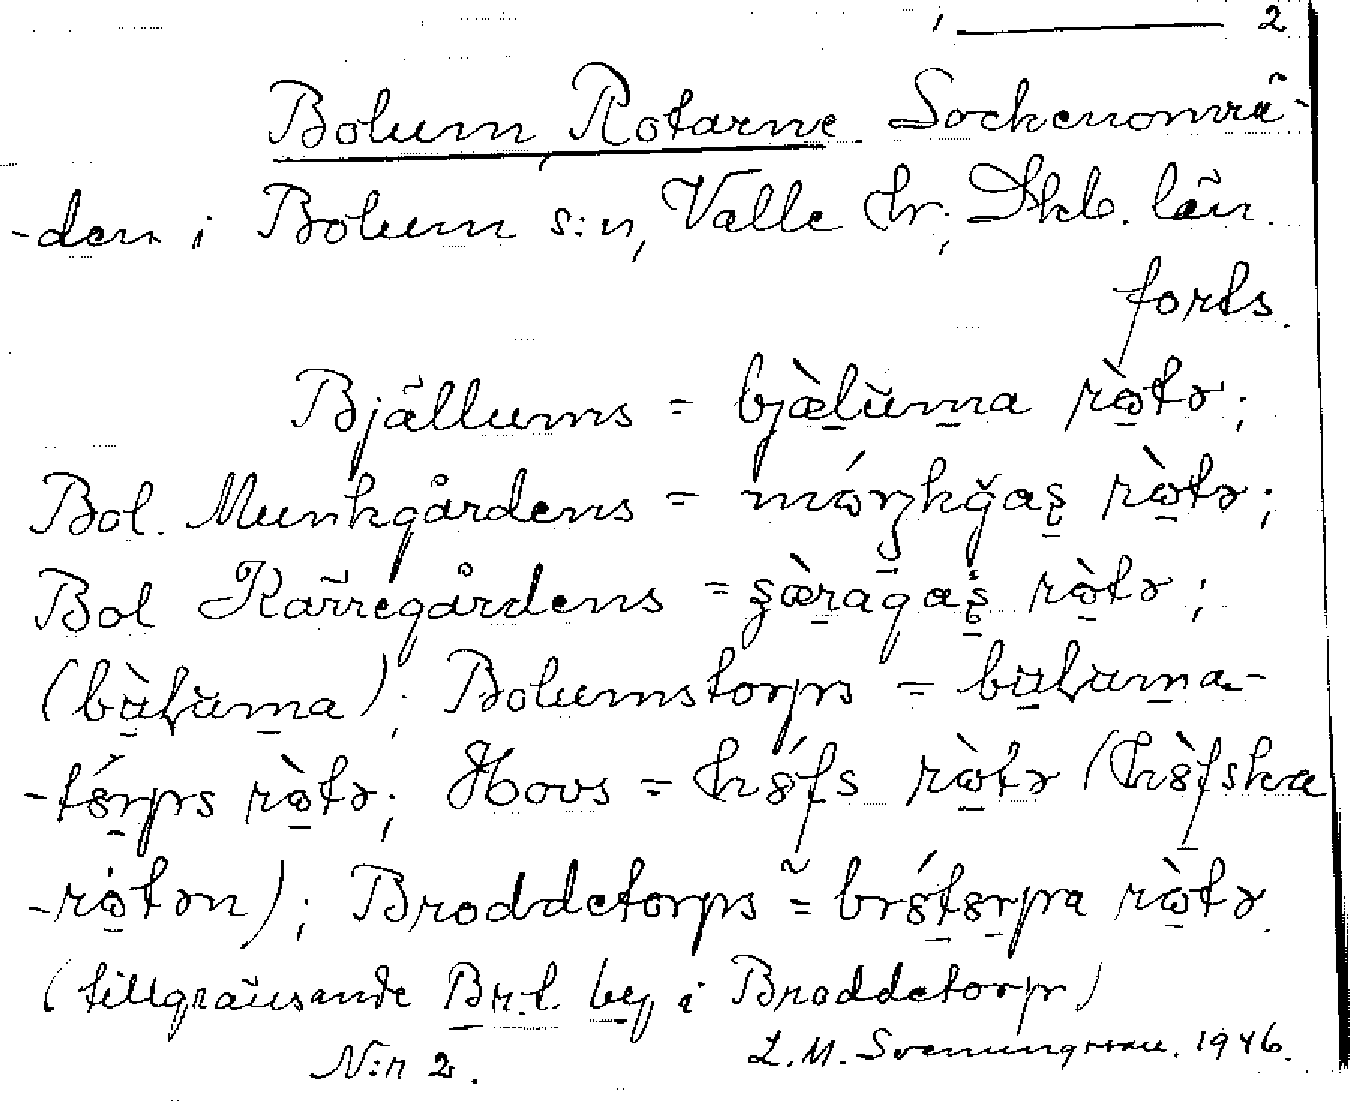 2
Bolum, Rotarne. Sockenområ-
-den i Bolum s:n, Valle hr, Skb. län.
forts.
Bjällums = bjæ̀lŭma rɷ̀tə;
Bol. Munkgårdens = mɷ́ŋkğas̨ rɷ̀tə;
Bol Kärregårdens = s̨æ̀ragas̨ rɷ̀tə;
(bùlŭma); Bolumstorps = bulŭma-
-tȣ́rps rɷ̀tə; Hovs = hȣ́fs rɷ̀tə (hȣ̀fska
-rɷtən); Broddetorps = brȣ́tȣrpa rɷ̀tə.
(tillgränsande Br.l. by i Broddetorp)
N:r 2. L.M. Svenungsson. 1946.